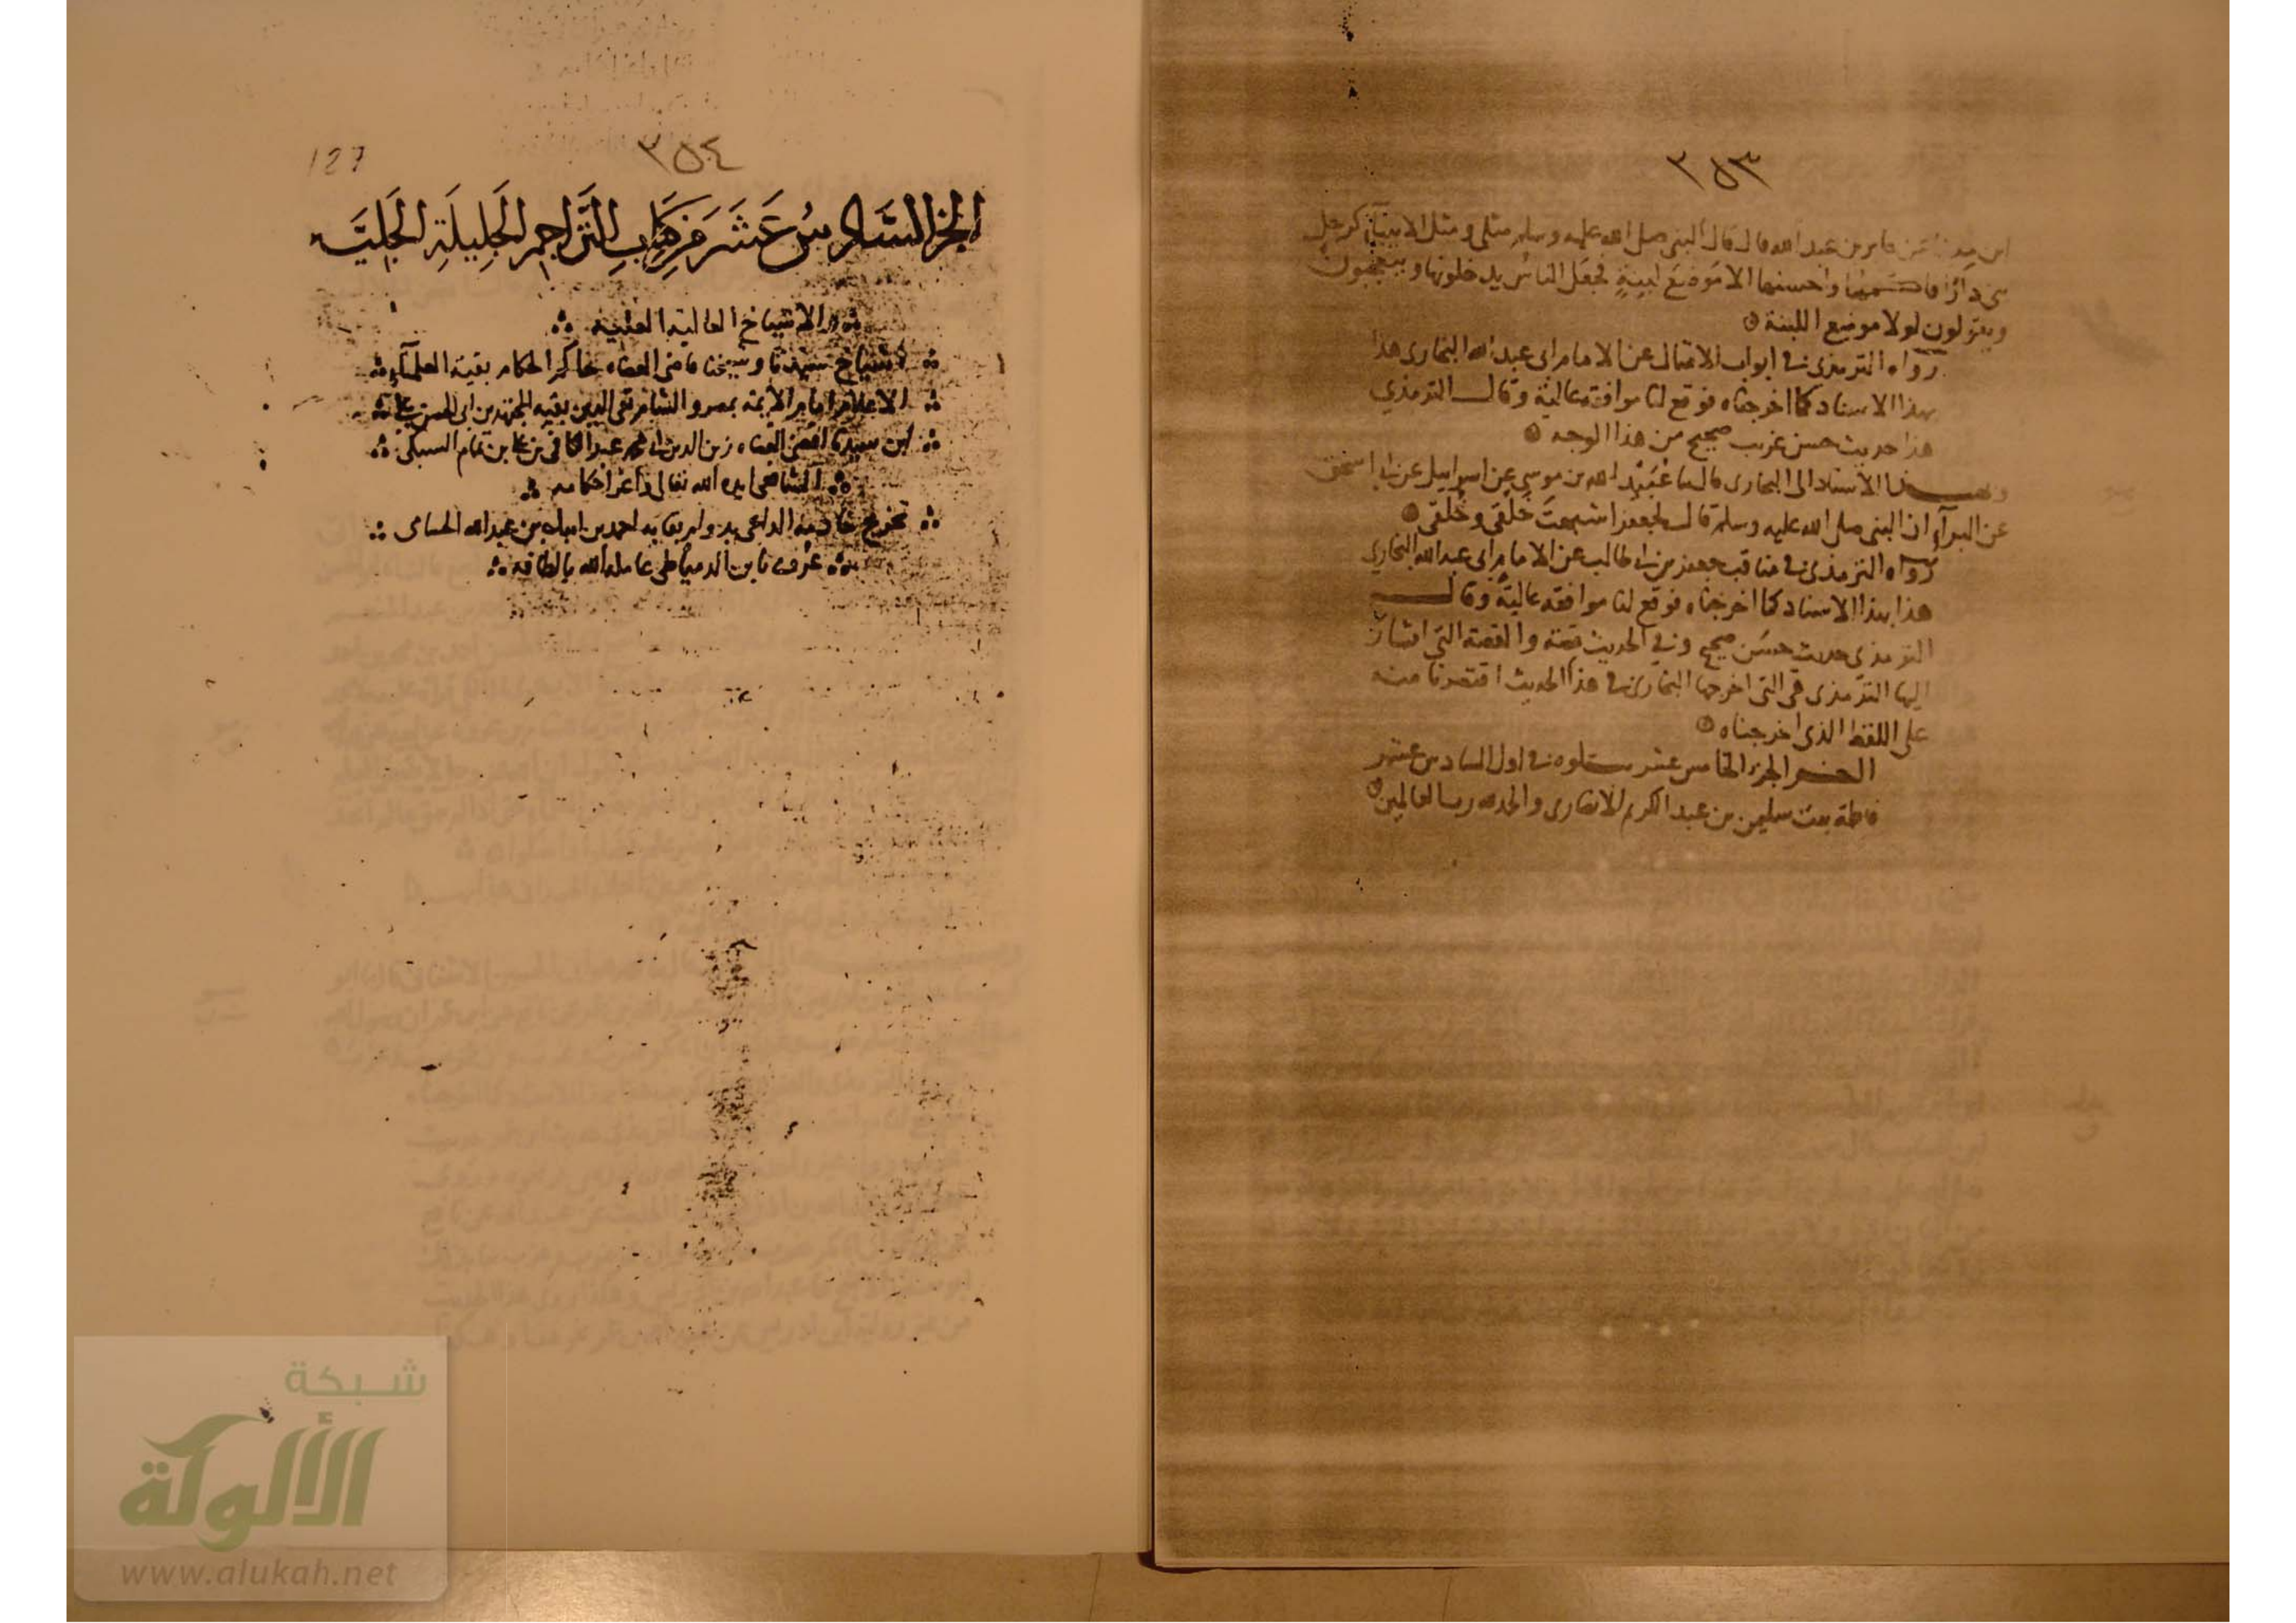 ٣٥٣
ابن ميناء عن جابر بن عبد الله قال قال النبي صلى الله عليه وسلم مثلي ومثل الانبياء كرجل
بنى دارا فاكملها واحسنها الا موضع لبنةٍ فجعل الناس يدخلونها ويتعجبون
ويقولون لولا موضع اللبنة
رواه الترمذي في ابواب الامثال عن الامام ابي عبد الله البخاري هذا
بهذا الاسناد كما اخرجناه فوقع لنا موافقة عالية وقال الترمذي
هذا حديث حسن غريب صحيح من هذا الوجه
الاسناد الى البخاري قال ثنا عُبَيْد الله بن موسى عن اسرايل عن ابي اسحق
عن البرآء ان النبي صلى الله عليه وسلم قال لجعفر اشبهت خَلقي وخُلقي
رواه الترمذي في مناقب جعفر بن ابي طالب عن الامام ابي عبد الله البخاري
هذا بهذا الاسناد كما اخرجناه فوقع لنا موافقه عالية وقال
الترمذي حديث حسن صحيح وفي الحديث قصه والقصة التي اشار
اليها الترمذي هي التي اخرجها البخاري في هذا الحديث اقتصرنا منه
على اللفظ الذي اخرجناه
اخر الجزء الخامس عشر يتلوه في اول السادس عشر
فاطمة بنت سليمن بن عبد الكريم الانصاري والحمد لله رب العالمين
٣٥٤
127
الجزء السَّادسُ عَشَرَ مِن كِتابِ التَّراجِم الجَلِيلَةِ الجَلِيَّة
والاشياخ العالية العلية
اشياخ سيدنا وشيخنا قاضي القضاه حاكم الحكام بقية العلمآء
الاعلام امام الأئمه بمصر والشام تقي الدين بقيه المجتهدين ابي الحسن علي
ابن سيدنا اقضى القضاه زين الدين ابي محمد عبد الكافي بن علي بن تمام السبكي
الشافعي ايده الله تعالى واعز احكامه
تخريج خادمه الداعي بدوام بقايه احمد بن ايبك بن عبد الله الحسامي
عُرف بابن الدمياطي عامله الله بالطافه
شبكة
الألوكة
www.alukah.net